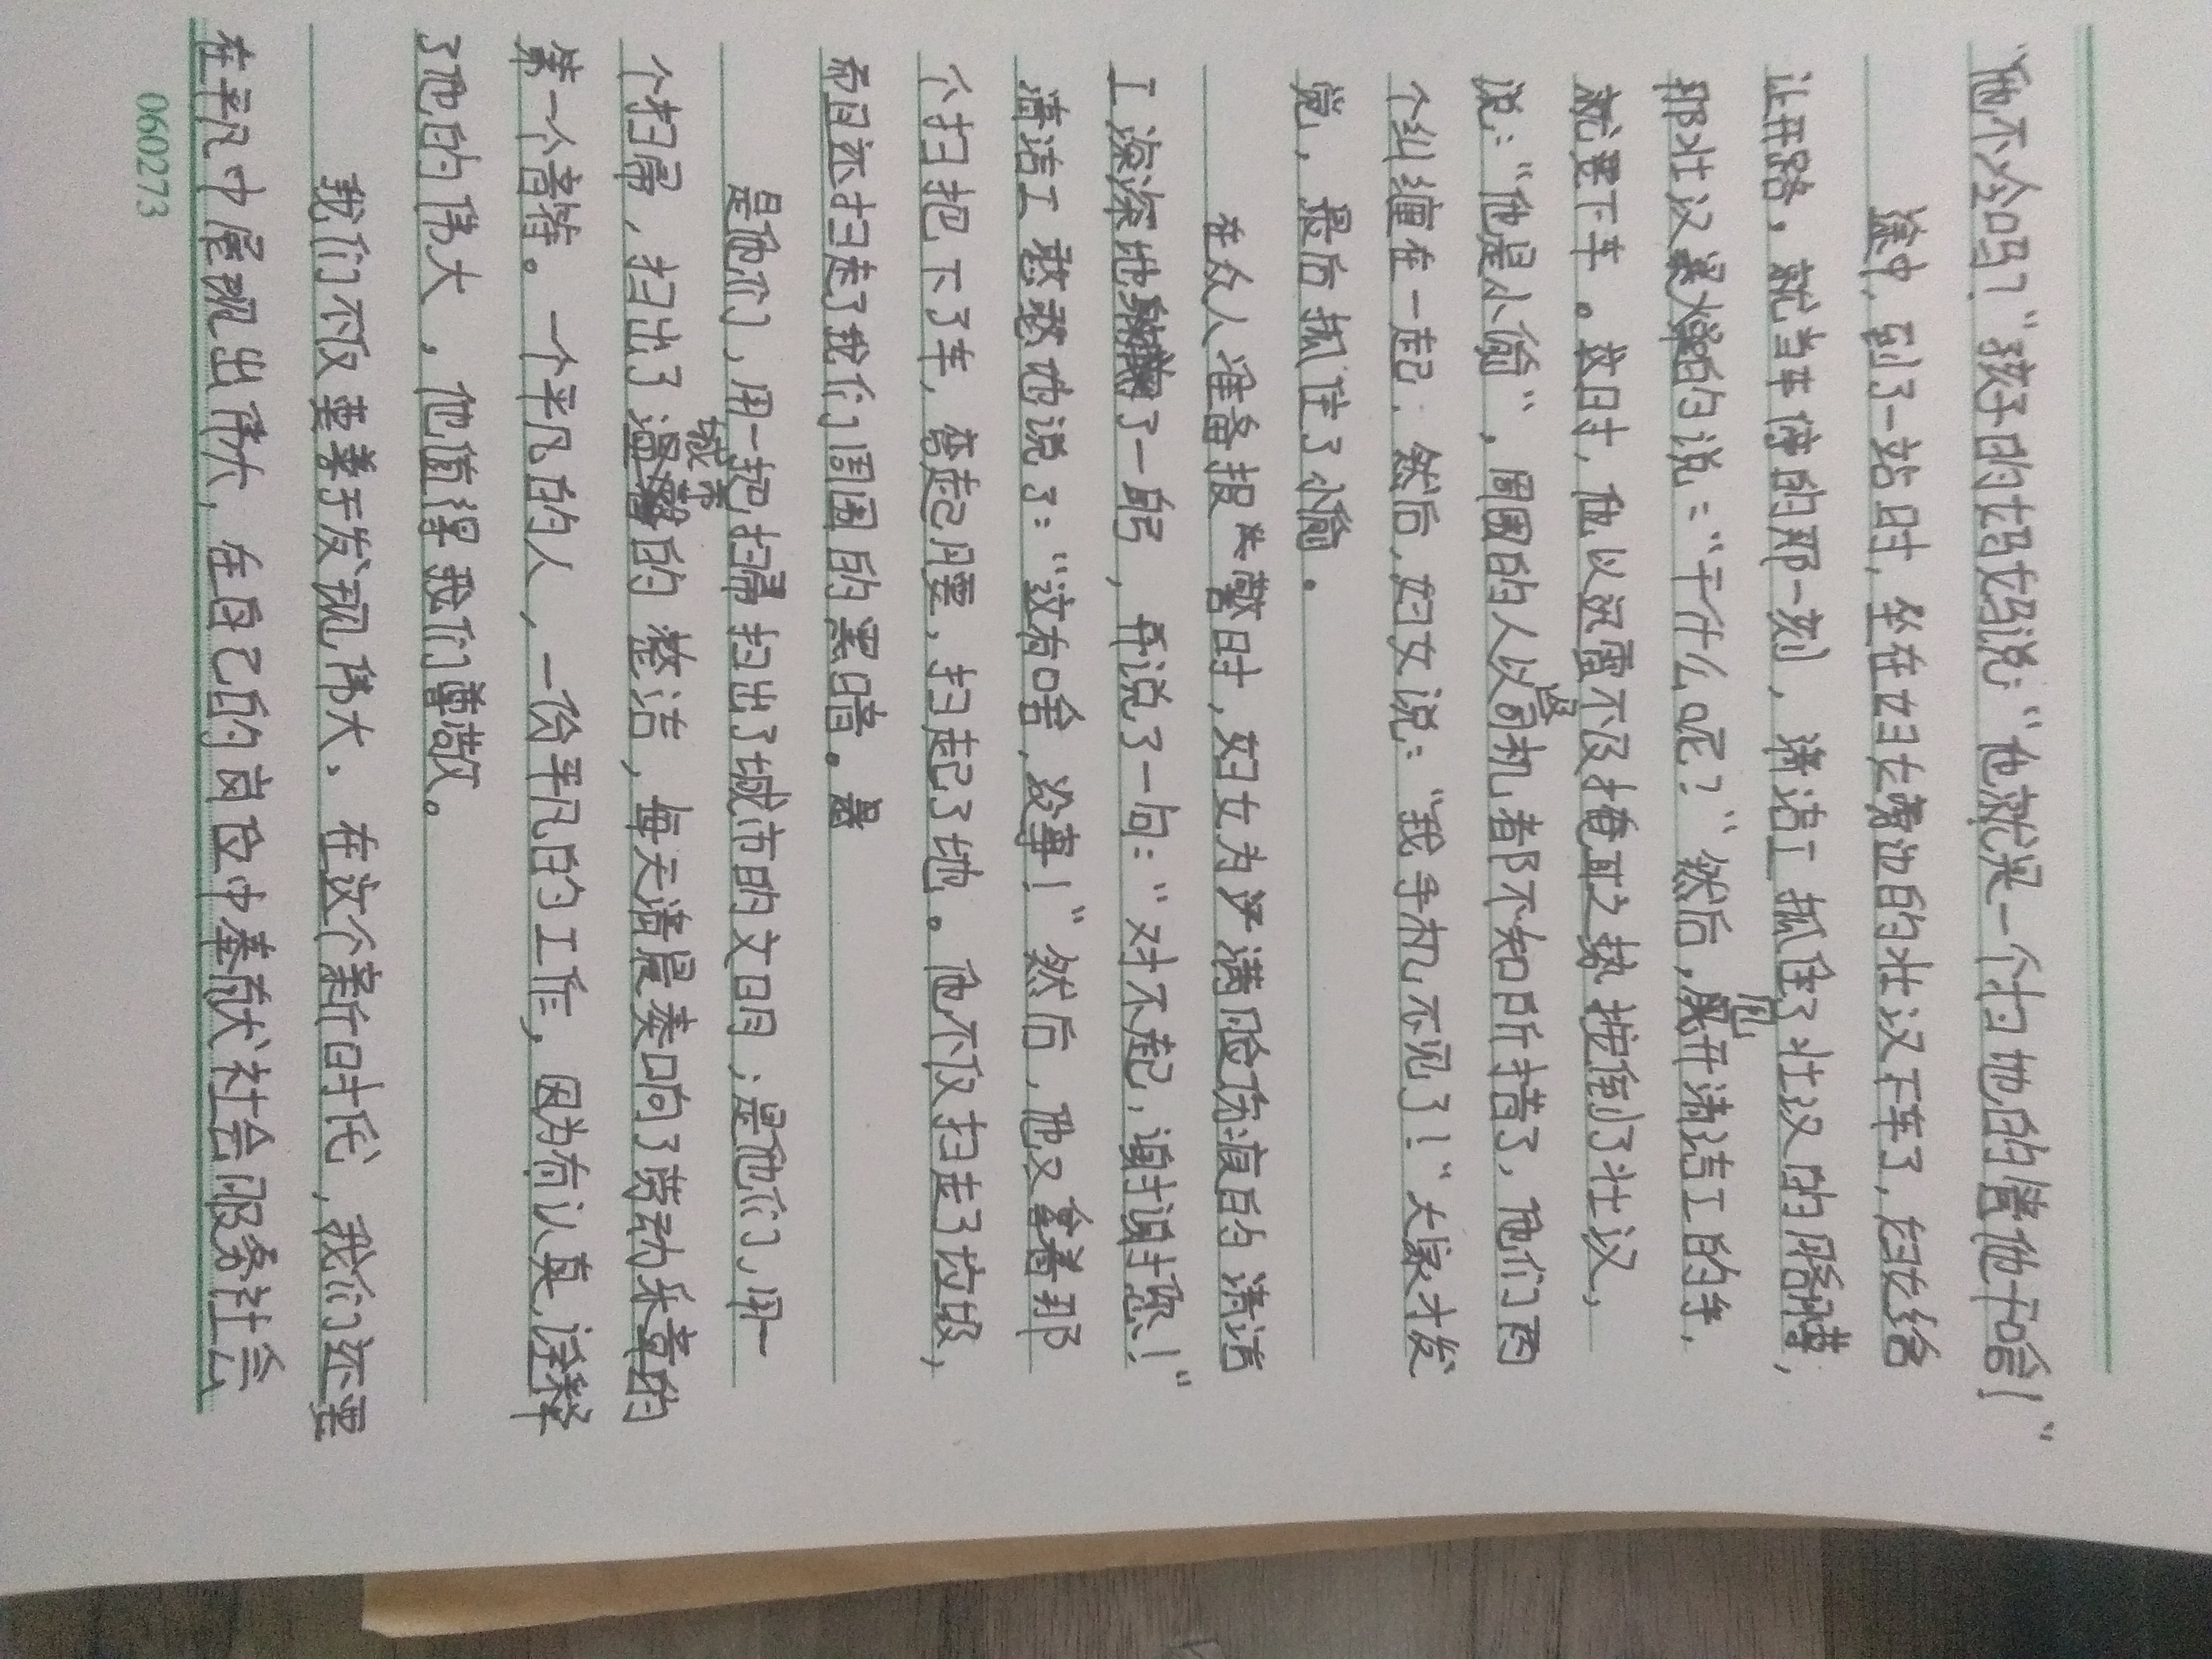 他不会吗？"孩子的妈妈说："他就呆一个扫地的管他干啥！"
途中，到了一站时，坐在妇女旁边的壮汉下车了，妇女给
让开路。就当车停的那一刻，清洁工抓住了壮汉的胳膊，
那壮汉恼火的说："干什么呢？"然后，甩开清洁工的手，
就要下车。这时，他以迅雷不及掩耳之势按倒了壮汉，
说："他是小偷"，周围的人以及司机都不知所措了，他们两
个纠缠在一起，然后，妇女说："我手机不见了！"大家才发
觉，最后抓住了小偷。
在众人准备报警时，妇女为满脸伤痕的清洁
工深深地鞠了一躬，并说了一句："对不起，谢谢您！"
清洁工憨憨地说了："没有啥，没事！"然后，他又拿着那
个扫把下了车，弯起月要，扫起了地。他不仅扫走了垃圾，
而且还扫走了我们周围的黑暗。
是他们，用一把扫帚扫出了城市的文明；是他们，用一
个扫帚，扫出了城市的整洁，每天清晨奏响了劳动乐章的
第一个音符。一个平凡的人，一份平凡的工作，因为有认真，诠释
了他的伟大，他值得我们尊敬。
我们不仅要善于发现伟大，在这个新时代，我们还要
在平凡中展现出伟大，在自己的岗位中奉献社会服务社会
060273